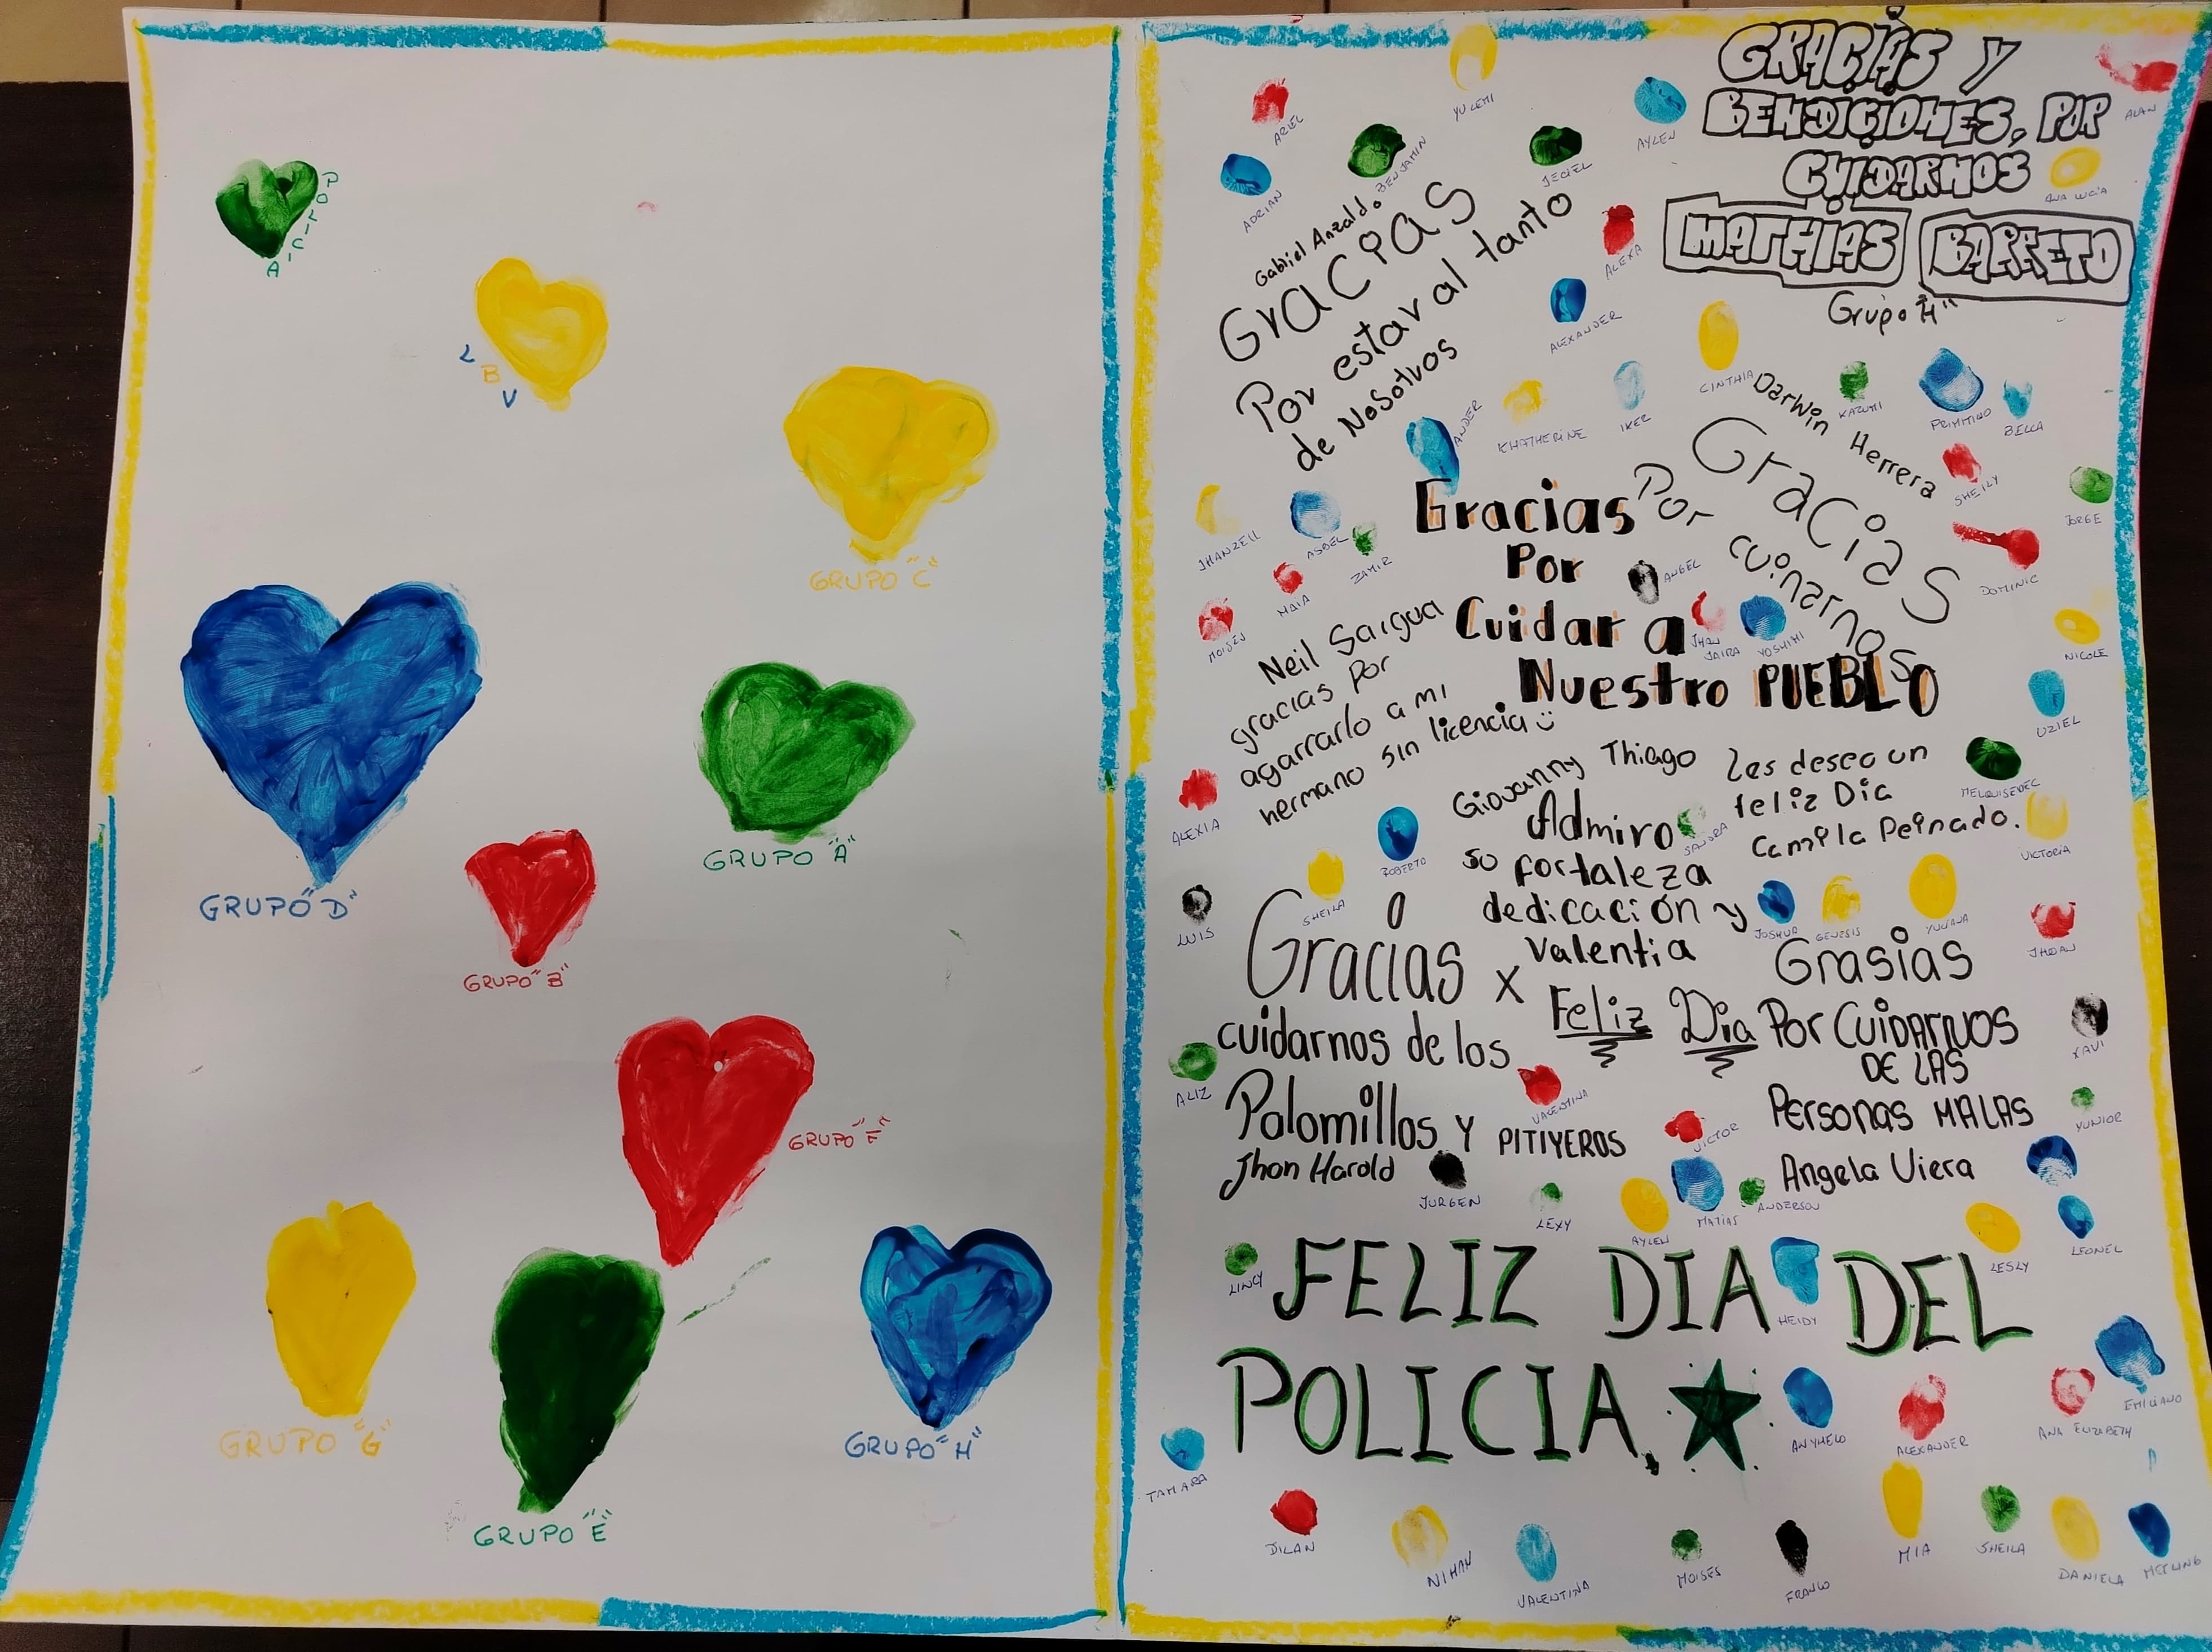 POLICIA
LBV
GRUPO "C"
GRUPO "D"
GRUPO "A"
GRUPO "B"
GRUPO "F"
GRUPO "G"
GRUPO "H"
GRUPO "E"
GRACIAS Y
BENDICIONES, POR
CUIDARNOS
MATHIAS BARRETO
Grupo "H"
ARIEL
YULEMI
AYLEN
ALAN
ADRIAN
BENJAMIN
JECIEL
ANA LUCIA
Gabriel Anzaldo
Gracias
Por estar al tanto
de Nosotros
ALEXA
ALEXANDER
CINTHIA
KHATHERINE
IKER
ANDER
KAZUMI
PRIMITIVO
BELLA
Darwin Herrera
Gracias
Por cuinarnos
SHEILY
JORGE
DOMINIC
NICOLE
UZIEL
JHANZELL
ASBEL
ZAMIR
MAIA
MOISES
Gracias
Por
Cuidar a
Nuestro PUEBLO
ANGEL
JHAN
JAIRA
YOSHIMI
Neil Saigua
gracias por
agarrarlo a mi
hermano sin licencia
ALEXIA
ROBERTO
SHEILA
LUIS
Giovanny Thiago
Admiro
su fortaleza
dedicación y
valentia
SANDRA
Les deseo un
feliz Dia
Camila Peinado.
MELQUISEDEC
VICTORIA
JOSHUA
GENESIS
YULIANA
JHOAN
Gracias x
cuidarnos de los
Palomillos y PITIYEROS
Jhon Harold
Feliz Dia
Grasias
Por CUIDARNOS
DE LAS
Personas MALAS
Angela Viera
XAVI
YUNIOR
ALIZ
VALENTINA
VICTOR
JURGEN
LEXY
AYLEN
MATIAS
ANDERSON
LESLY
LEONEL
LINCY
FELIZ DIA DEL
POLICIA.
HEIDY
EMILIANO
ANYHELO
ALEXANDER
ANA ELIZABETH
TAMARA
DILAN
NIHAN
VALENTINA
MOISES
FRANCO
MIA
SHEILA
DANIELA